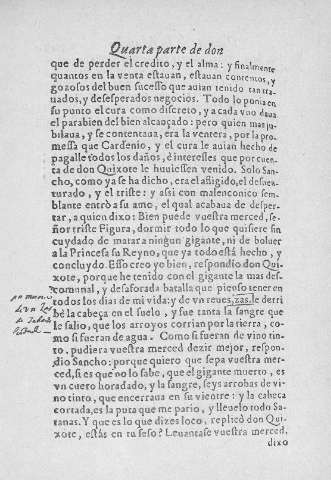 Quarta parte de don
que de perder el credito, y el alma: y finalmente
quantos en la venta estauan, estauan contentos, y
gozosos del buen sucesso que auian tenido tan tra-
uados, y desesperados negocios. Todo lo ponia en
su punto el cura como discreto, y a cada vno daua
el parabien del bien alcançado: pero quien mas ju-
bilaua, y se contentaua, era la ventera, por la pro-
messa que Cardenio, y el cura le auian hecho de
pagalle todos los daños, è interesses que por cuen-
ta de don Quixote le huuiessen venido. Solo San-
cho, como ya se ha dicho, era el afligido, el desuen-
turado, y el triste: y assi con malenconico sem-
blante entrò a su amo, el qual acabaua de desper-
tar, a quien dixo: Bien puede vuestra merced, se-
ñor triste Figura, dormir todo lo que quisiere sin
cuydado de matar a ningun gigante, ni de boluer
a la Princesa su Reyno, que ya todo està hecho, y
concluydo. Esso creo yo bien, respondio don Qui-
xote, porque he tenido con el gigante la mas des-
comunal, y desaforada batalla que pienso tener en
todos los dias de mi vida: y de vn reues, zas, le derri
bè la cabeça en el suelo, y fue tanta la sangre que
le salio, que los arroyos corrian por la tierra, co-
mo si fueran de agua. Como si fueran de vino tin-
to, pudiera vuestra merced dezir mejor, respon-
dio Sancho: porque quiero que sepa vuestra mer-
ced, si es que no lo sabe, que el gigante muerto, es
vn cuero horadado, y la sangre, seys arrobas de vi-
no tinto, que encerraua en su vientre: y la cabeça
cortada, es la puta que me pario, y lleuelo todo Sa-
tanas. Y que es lo que dizes loco, replicò don Qui-
xote, estàs en tu seso? Leuantase vuestra merced,
dixo